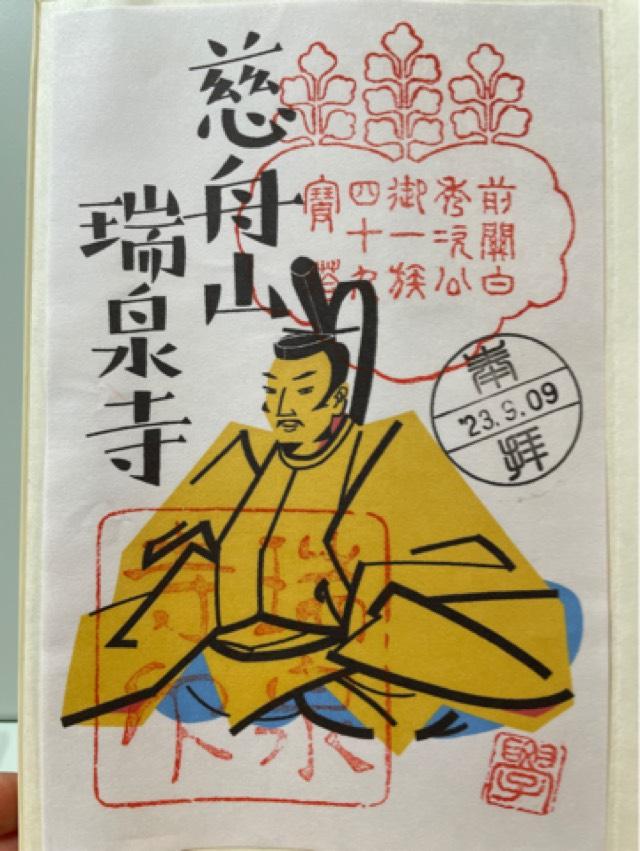 慈舟山
瑞泉寺
前關白
秀次公
御一族
四十九
寶塔
奉
'23.9.09
拝
瑞泉
寺印
學